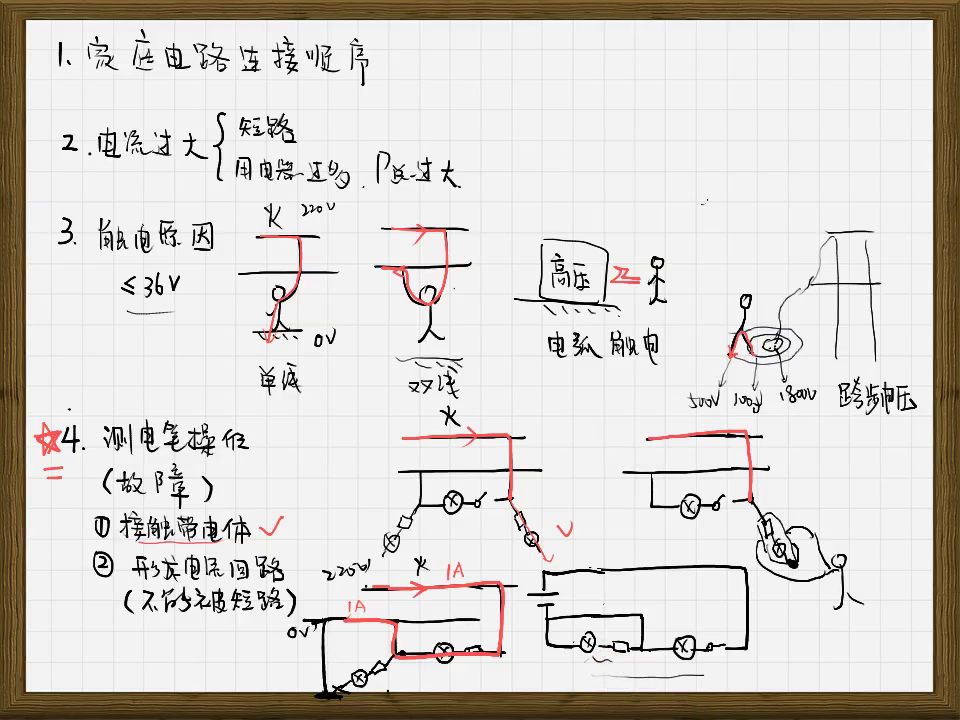 1. 家庭电路连接顺序
2. 电流过大
短路
用电器过多, P总过大
3. 触电原因
≤36V
火 220V
0V
单线
双线
高压
电弧触电
500V 1000V 1800V
跨步电压
☆4. 测电笔操作
(故障)
① 接触带电体 ✓
② 形成电流回路
(不能被短路)
火
220V 火 1A
1A
0V